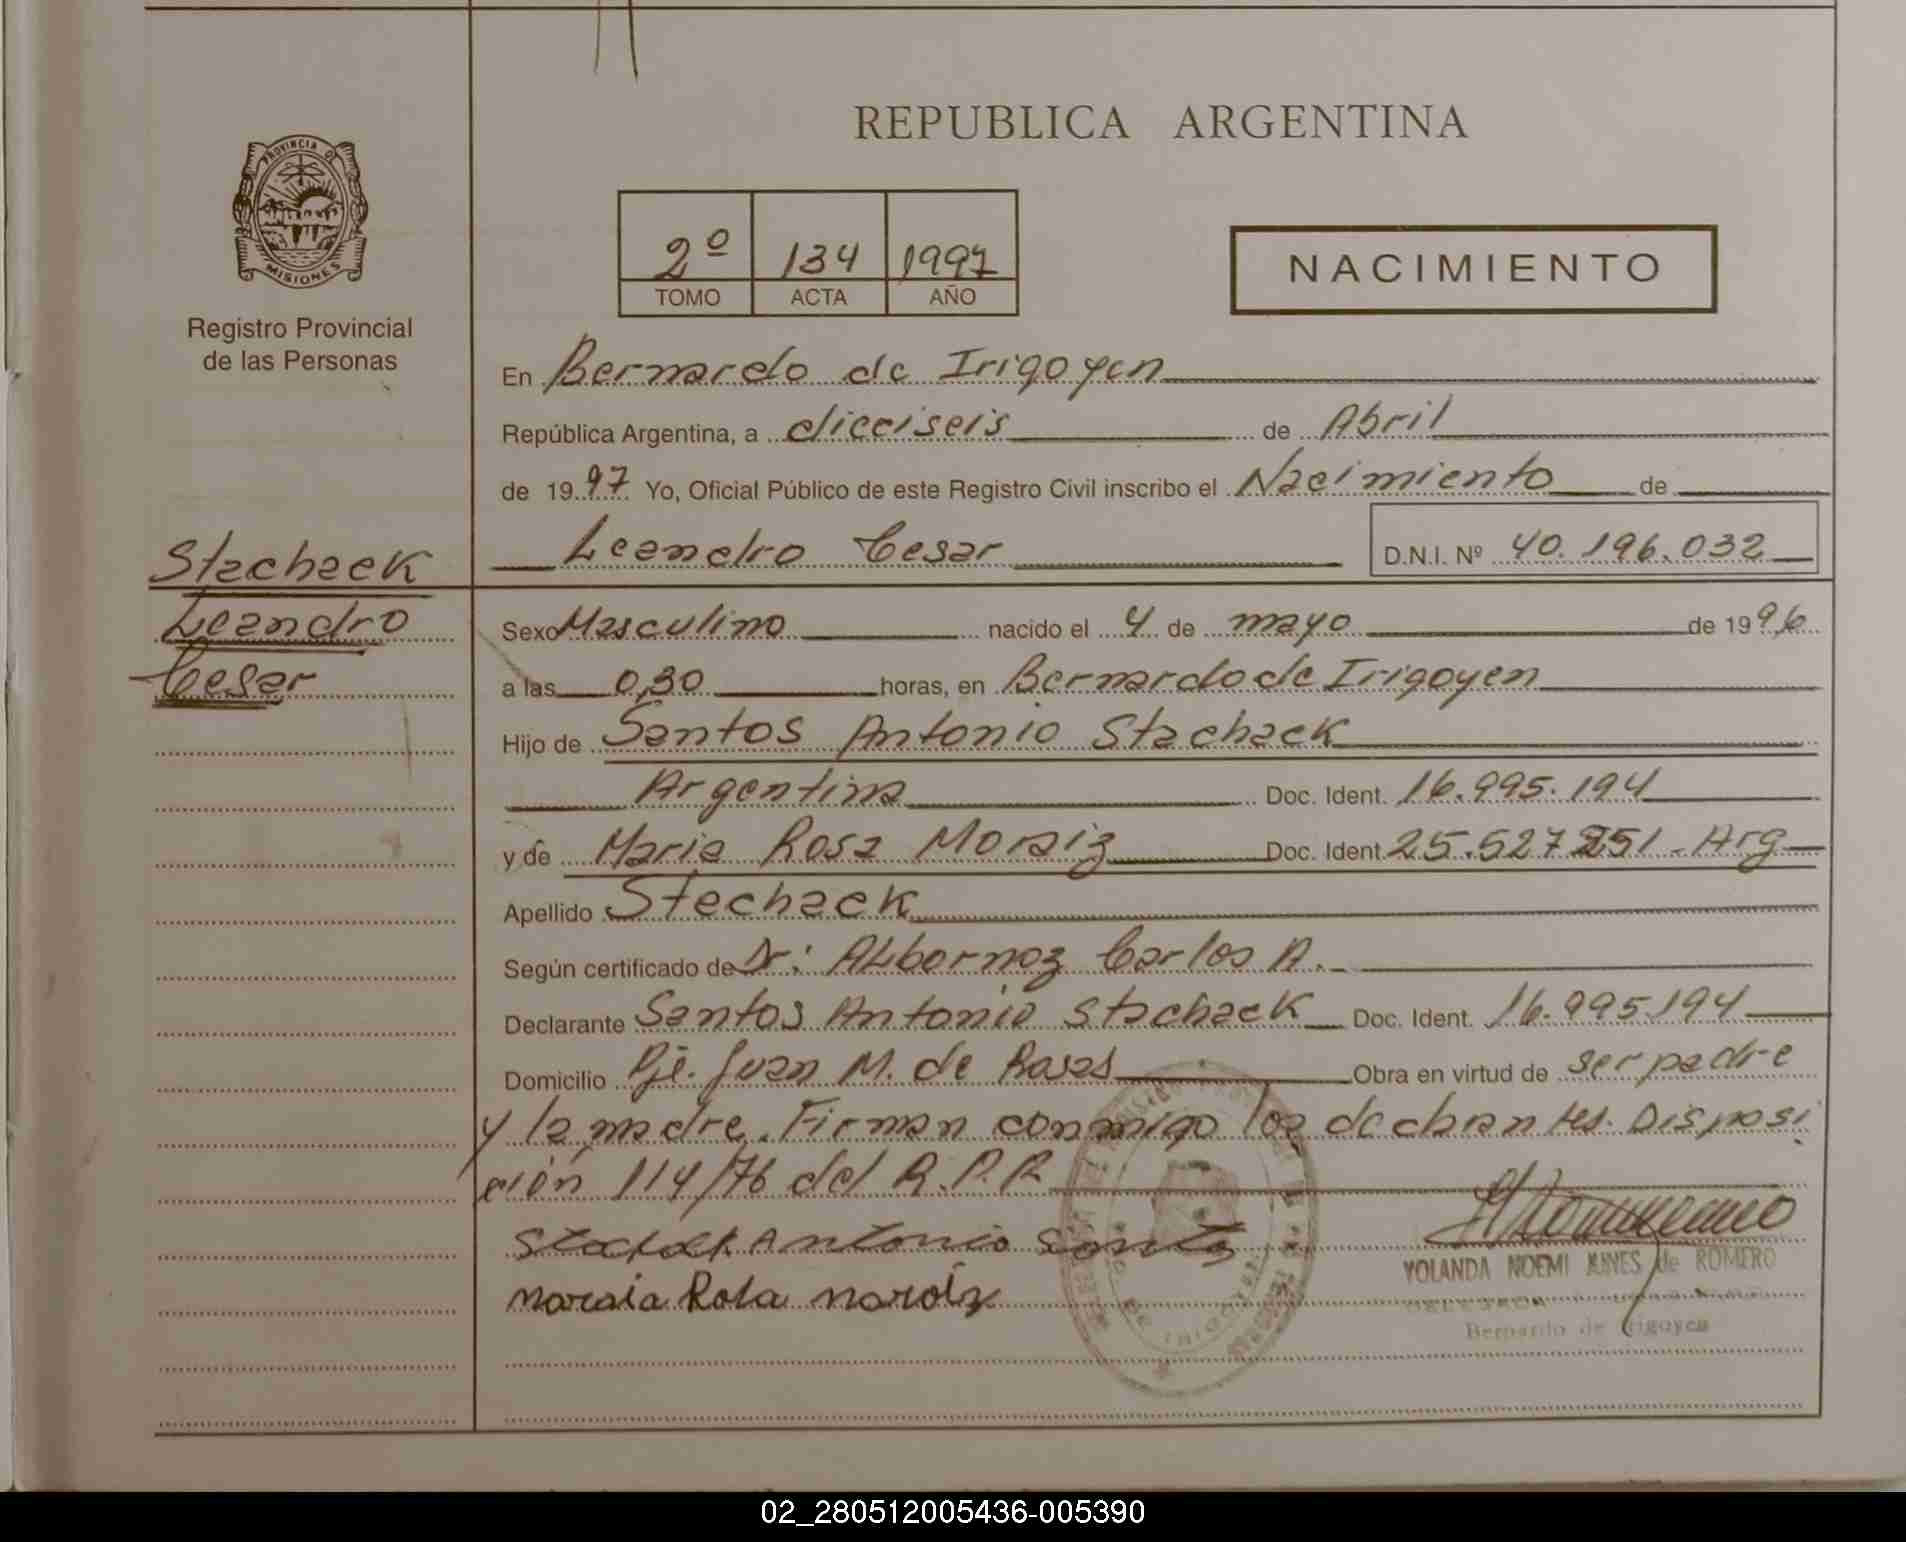 REPUBLICA ARGENTINA
PROVINCIA DE
MISIONES
Registro Provincial
de las Personas
2º 134 1997
TOMO ACTA AÑO
NACIMIENTO
En Bernardo de Irigoyen
República Argentina, a dieciseis de Abril
de 1997 Yo, Oficial Público de este Registro Civil inscribo el Nacimiento de
Leandro Cesar D.N.I. Nº 40.196.032
Stachack
Leandro
Cesar
Sexo Masculino nacido el 4 de mayo de 1996
a las 0,30 horas, en Bernardo de Irigoyen
Hijo de Santos Antonio Stachack
Argentina Doc. Ident. 16.995.194
y de Maria Rosa Moraiz Doc. Ident. 25.527.251 - Arg
Apellido Stachack
Según certificado de Dr: Albornoz Carlos A.
Declarante Santos Antonio Stachack Doc. Ident. 16.995.194
Domicilio Pje. Juan M. de Rosas Obra en virtud de ser padre
y la madre. Firman conmigo los declarantes. Disposi
ción 114/76 del R.P.P.
Antonio Santos
Rosa
YOLANDA NOEMI de ROMERO
Bernardo de Irigoyen
02_280512005436-005390